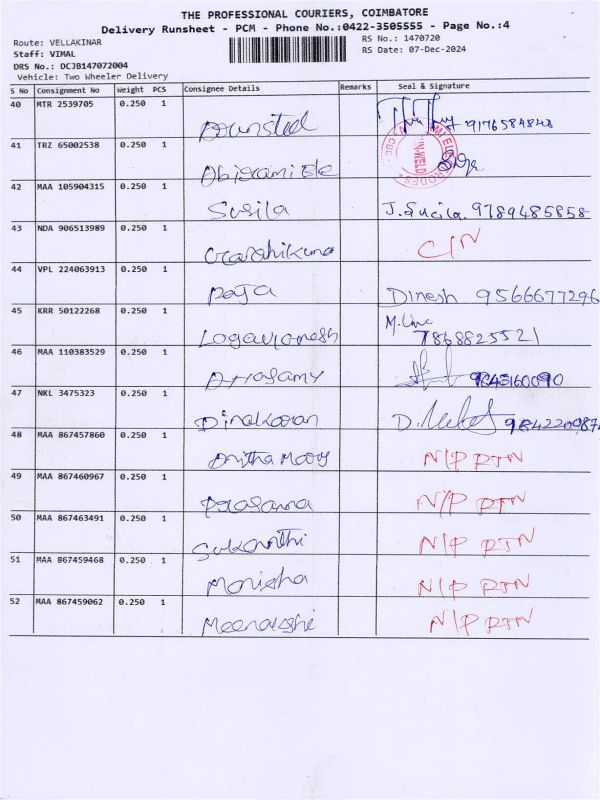 THE PROFESSIONAL COURIERS, COIMBATORE
Delivery Runsheet - PCM - Phone No.:0422-3505555 - Page No.:4
Route: VELLAKINAR RS No.: 1470720
Staff: VIMAL RS Date: 07-Dec-2024
DRS No.: DCJB147072004
Vehicle: Two Wheeler Delivery
S No Consignment No Weight PCS Consignee Details Remarks Seal & Signature
40 MTR 2539705 0.250 1 9176584848
41 TRZ 65002538 0.250 1 Abirami
42 MAA 105904315 0.250 1 Susila J. Sucila 9789485858
43 NDA 906513989 0.250 1 C/N
44 VPL 224063913 0.250 1 Raja Dinesh 9566677296
45 KRR 50122268 0.250 1 7868825521
46 MAA 110383529 0.250 1
47 NKL 3475323 0.250 1 Dinakaran
48 MAA 867457860 0.250 1 N/P RTN
49 MAA 867460967 0.250 1 N/P RTN
50 MAA 867463491 0.250 1 Sukanthi N/P RTN
51 MAA 867459468 0.250 1 Monisha N/P RTN
52 MAA 867459062 0.250 1 N/P RTN